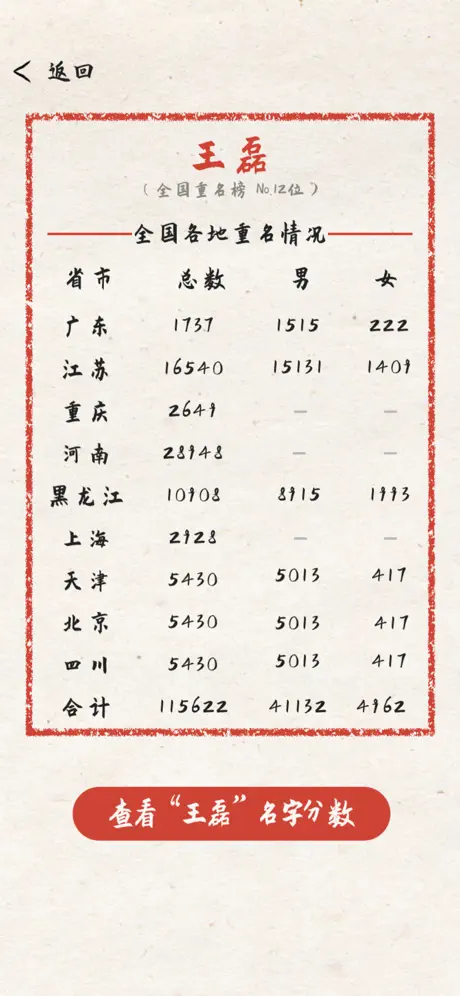 < 返回
王磊
（全国重名榜 No.12位）
全国各地重名情况
省市 总数 男 女
广东 1737 1515 222
江苏 16540 15131 1409
重庆 2649 — —
河南 28948 — —
黑龙江 10908 8915 1993
上海 2928 — —
天津 5430 5013 417
北京 5430 5013 417
四川 5430 5013 417
合计 115622 41132 4962
查看“王磊”名字分数